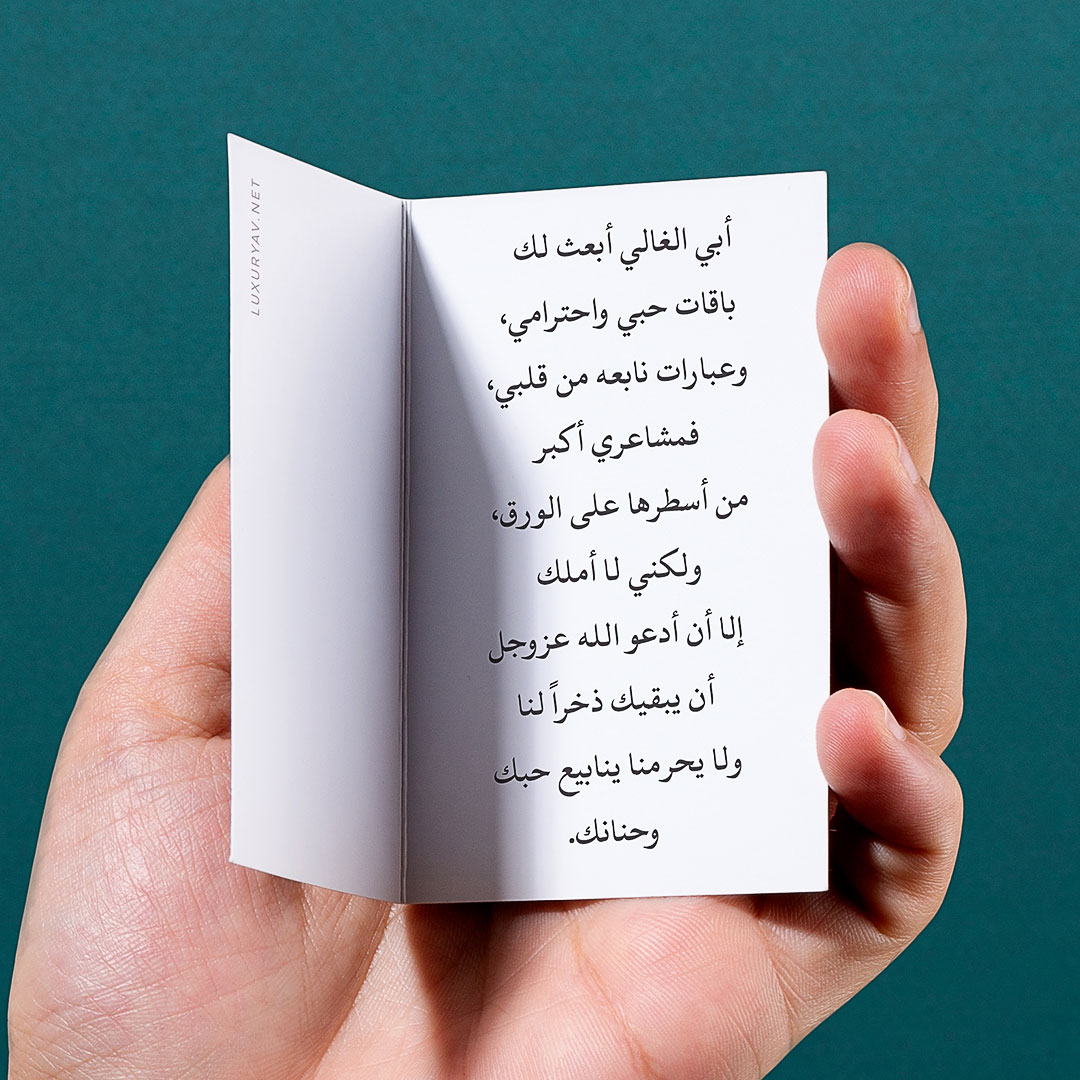 أبي الغالي أبعث لك
باقات حبي واحترامي،
وعبارات نابعه من قلبي،
فمشاعري أكبر
من أسطرها على الورق،
ولكني لا أملك
إلا أن أدعو الله عزوجل
أن يبقيك ذخراً لنا
ولا يحرمنا ينابيع حبك
وحنانك.
LUXURYAV.NET